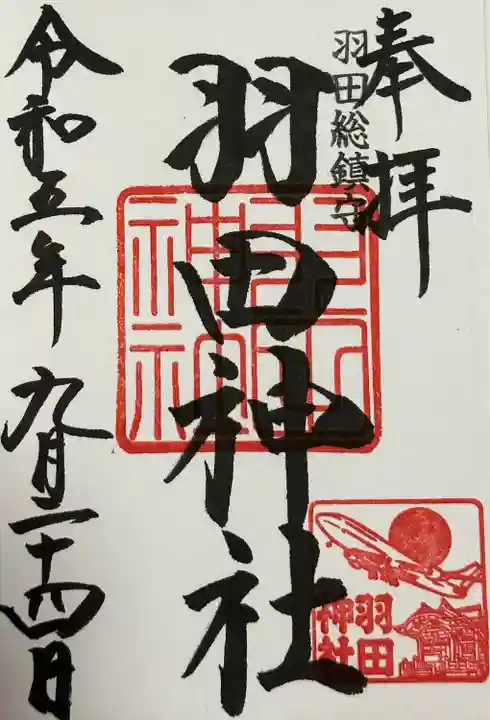 奉拝
羽田総鎮守
羽田神社
羽田神社
令和五年九月二十四日
羽田
神社